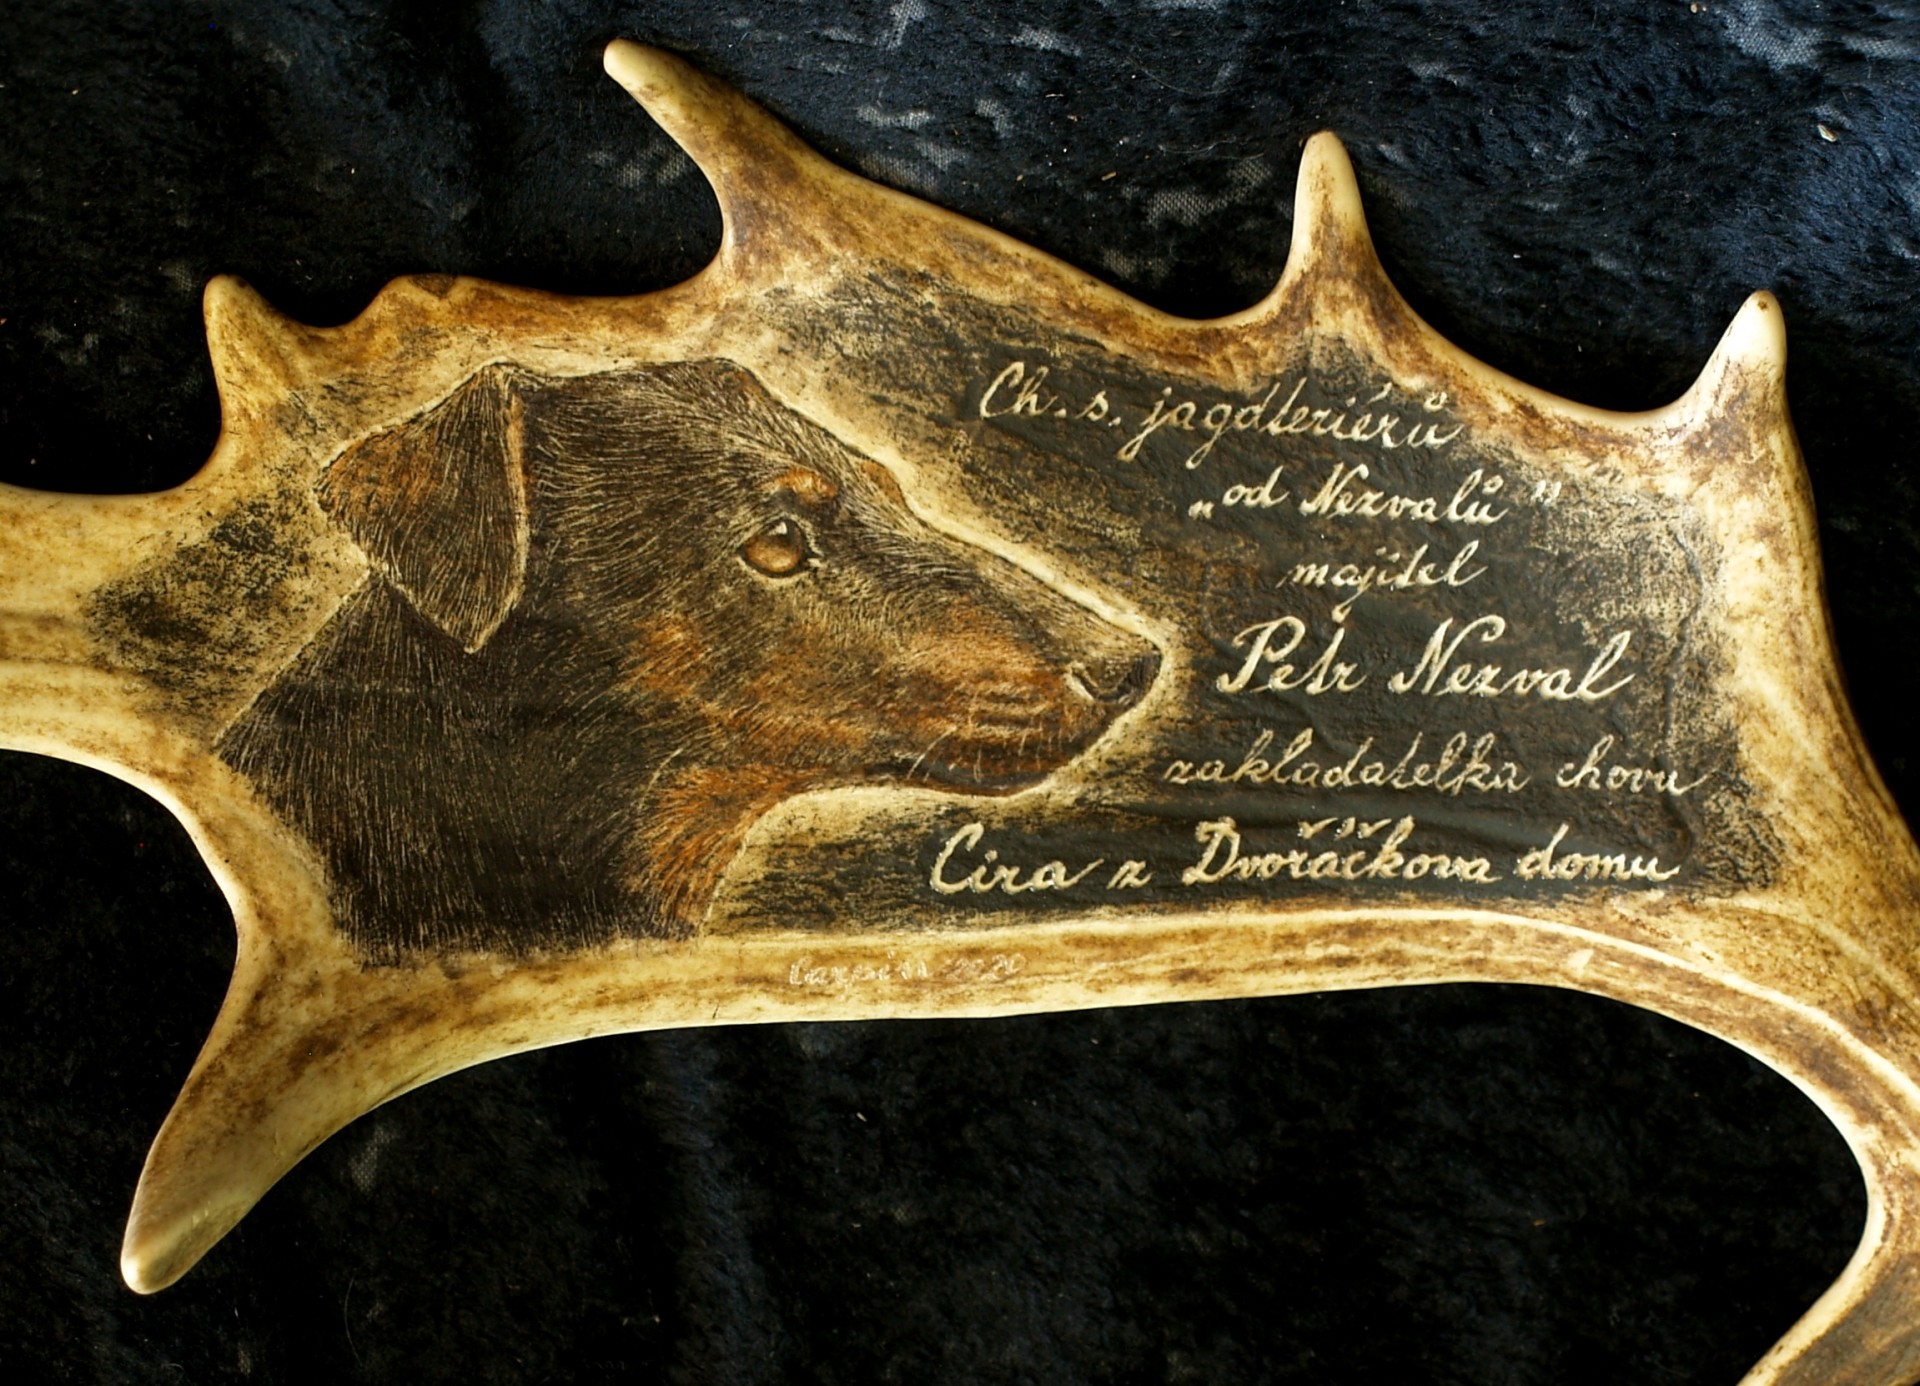 Ch. s. jagdteriérů
„od Nezvalů"
majitel
Petr Nezval
zakladatelka chovu
Cira z Dvořáčkova domu